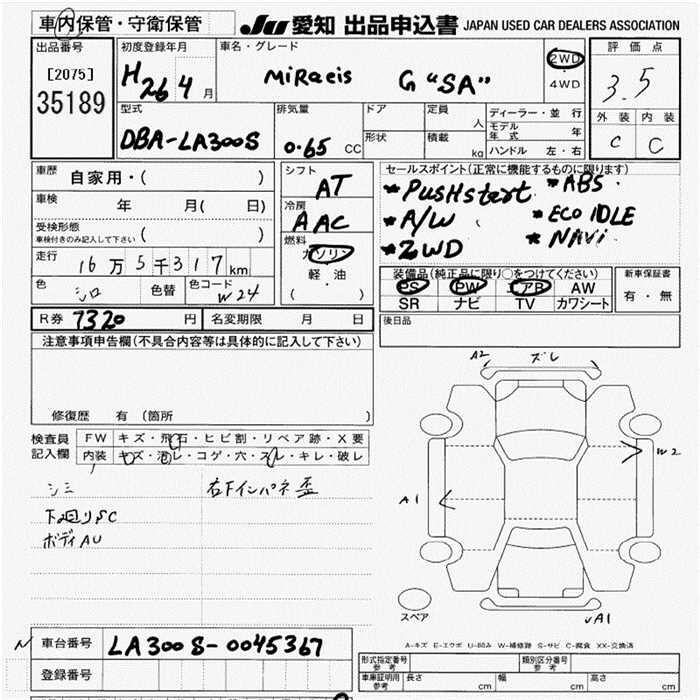 車内保管・守衛保管
JU 愛知 出品申込書 JAPAN USED CAR DEALERS ASSOCIATION
出品番号
[2075]
35189
初度登録年月
H26 4 月
車名・グレード
MiRaeis G "SA"
2WD
・
4WD
評価点
3.5
外装 内装
C C
型式
DBA-LA300S
排気量
0.65 CC
ドア
形状
定員 人
積載 kg
ディーラー・並行
モデル年式 年
ハンドル 左・右
車歴 自家用・( )
車検 年 月( 日)
受検形態
車検付きのみ記入して下さい ( )
走行 16万5千317km
色 シロ 色替 色コード W24
シフト
AT
冷房
AAC
燃料
ガソリン
軽油
( ・ )
セールスポイント(正常に機能するものに限ります)
*PusHstart *ABS.
*A/W *Eco IDLE
*2WD *NAVi
装備品(純正品に限り○をつけてください)
PS PW エアB AW
SR ナビ TV カワシート
新車保証書
有・無
R券 7320 円 名変期限 月 日
後日品
注意事項申告欄(不具合内容等は具体的に記入して下さい)
修復歴 有 (箇所 )
検査員記入欄
FW キズ・飛石・ヒビ割・リペア跡・X要
内装 キズ・汚レ・コゲ・穴・スレ・キレ・破レ
シミ 右下インパネ歪
下回りSC
ボディAU
A2 ズレ
W2
A1
スペア
A1
A-キズ E-エクボ U-凹み W-補修跡 S-サビ C-腐食 XX-交換済
車台番号 LA300S-0045367
登録番号
形式指定番号
参考
類別区分番号
参考
車庫証明用
参考
長さ cm 幅 cm 高さ cm